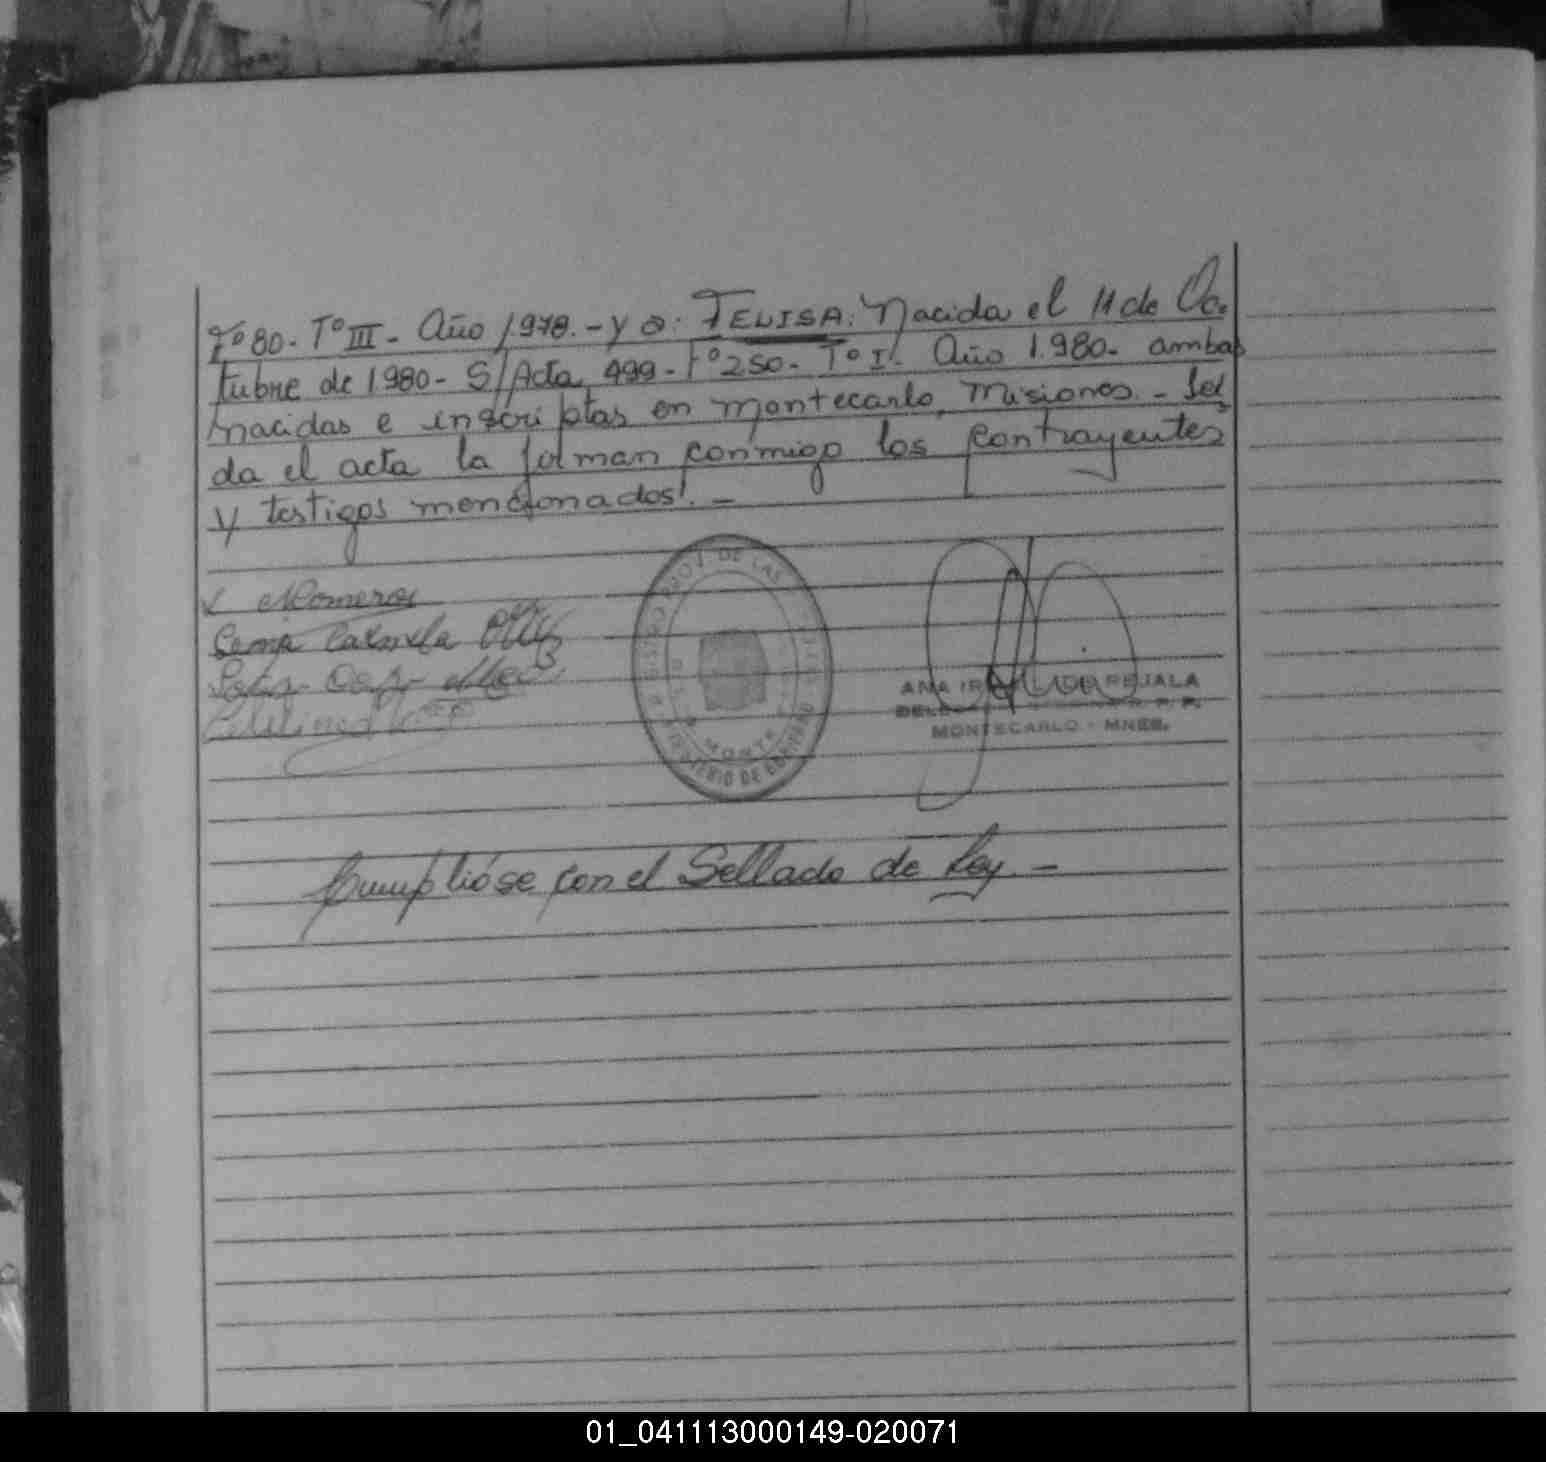 Fº 80. Tº III. Año 1978. - y a: FELISA: Nacida el 11 de Oc.
tubre de 1980 - S/Acta 499 - Fº 250 - Tº I. Año 1.980. ambas
nacidas e inscriptas en Montecarlo, Misiones. - Leí
da el acta la forman conmigo los contrayentes
y testigos mencionados. -
REGISTRO PROV. DE LAS
MONTE
MINISTERIO DE GOBIERNO
ANA IR
MONTECARLO - MNES.
Cumplióse con el Sellado de Ley. -
01_041113000149-020071